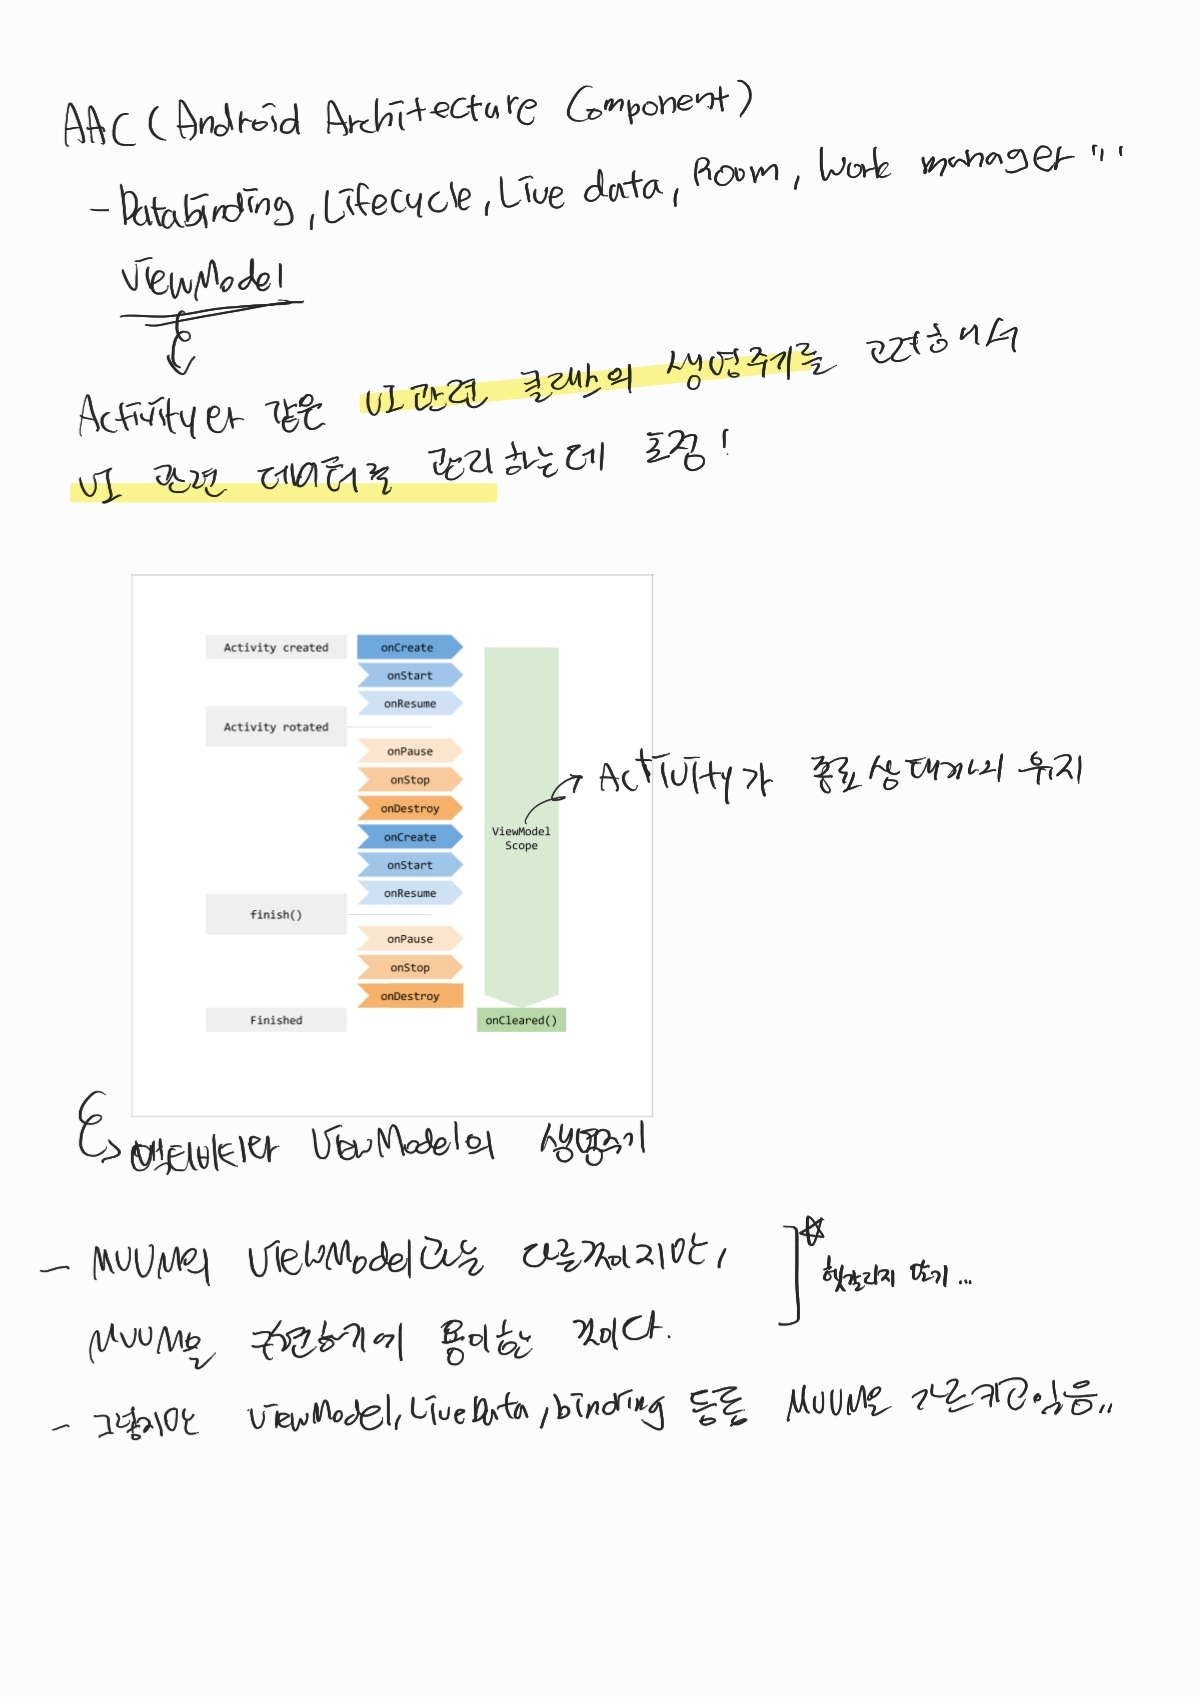 AAC (Android Architecture Component)
- Databinding, Lifecycle, Live data, Room, Work manager ...
ViewModel
Activity와 같은 UI 관련 클래스의 생명주기를 고려해서
UI 관련 데이터를 관리하는데 초점!
Activity created
onCreate
onStart
onResume
Activity rotated
onPause
onStop
onDestroy
onCreate
onStart
onResume
finish()
onPause
onStop
onDestroy
Finished
ViewModel
Scope
onCleared()
Activity가 종료상태까지 유지
액티비티와 ViewModel의 생명주기
- MVVM의 ViewModel과는 다른것이지만,
MVVM을 구현하기에 용이한 것이다.
헷갈리지 말기...
- 그렇지만 ViewModel, LiveData, binding 등을 MVVM은 가르키고있음..